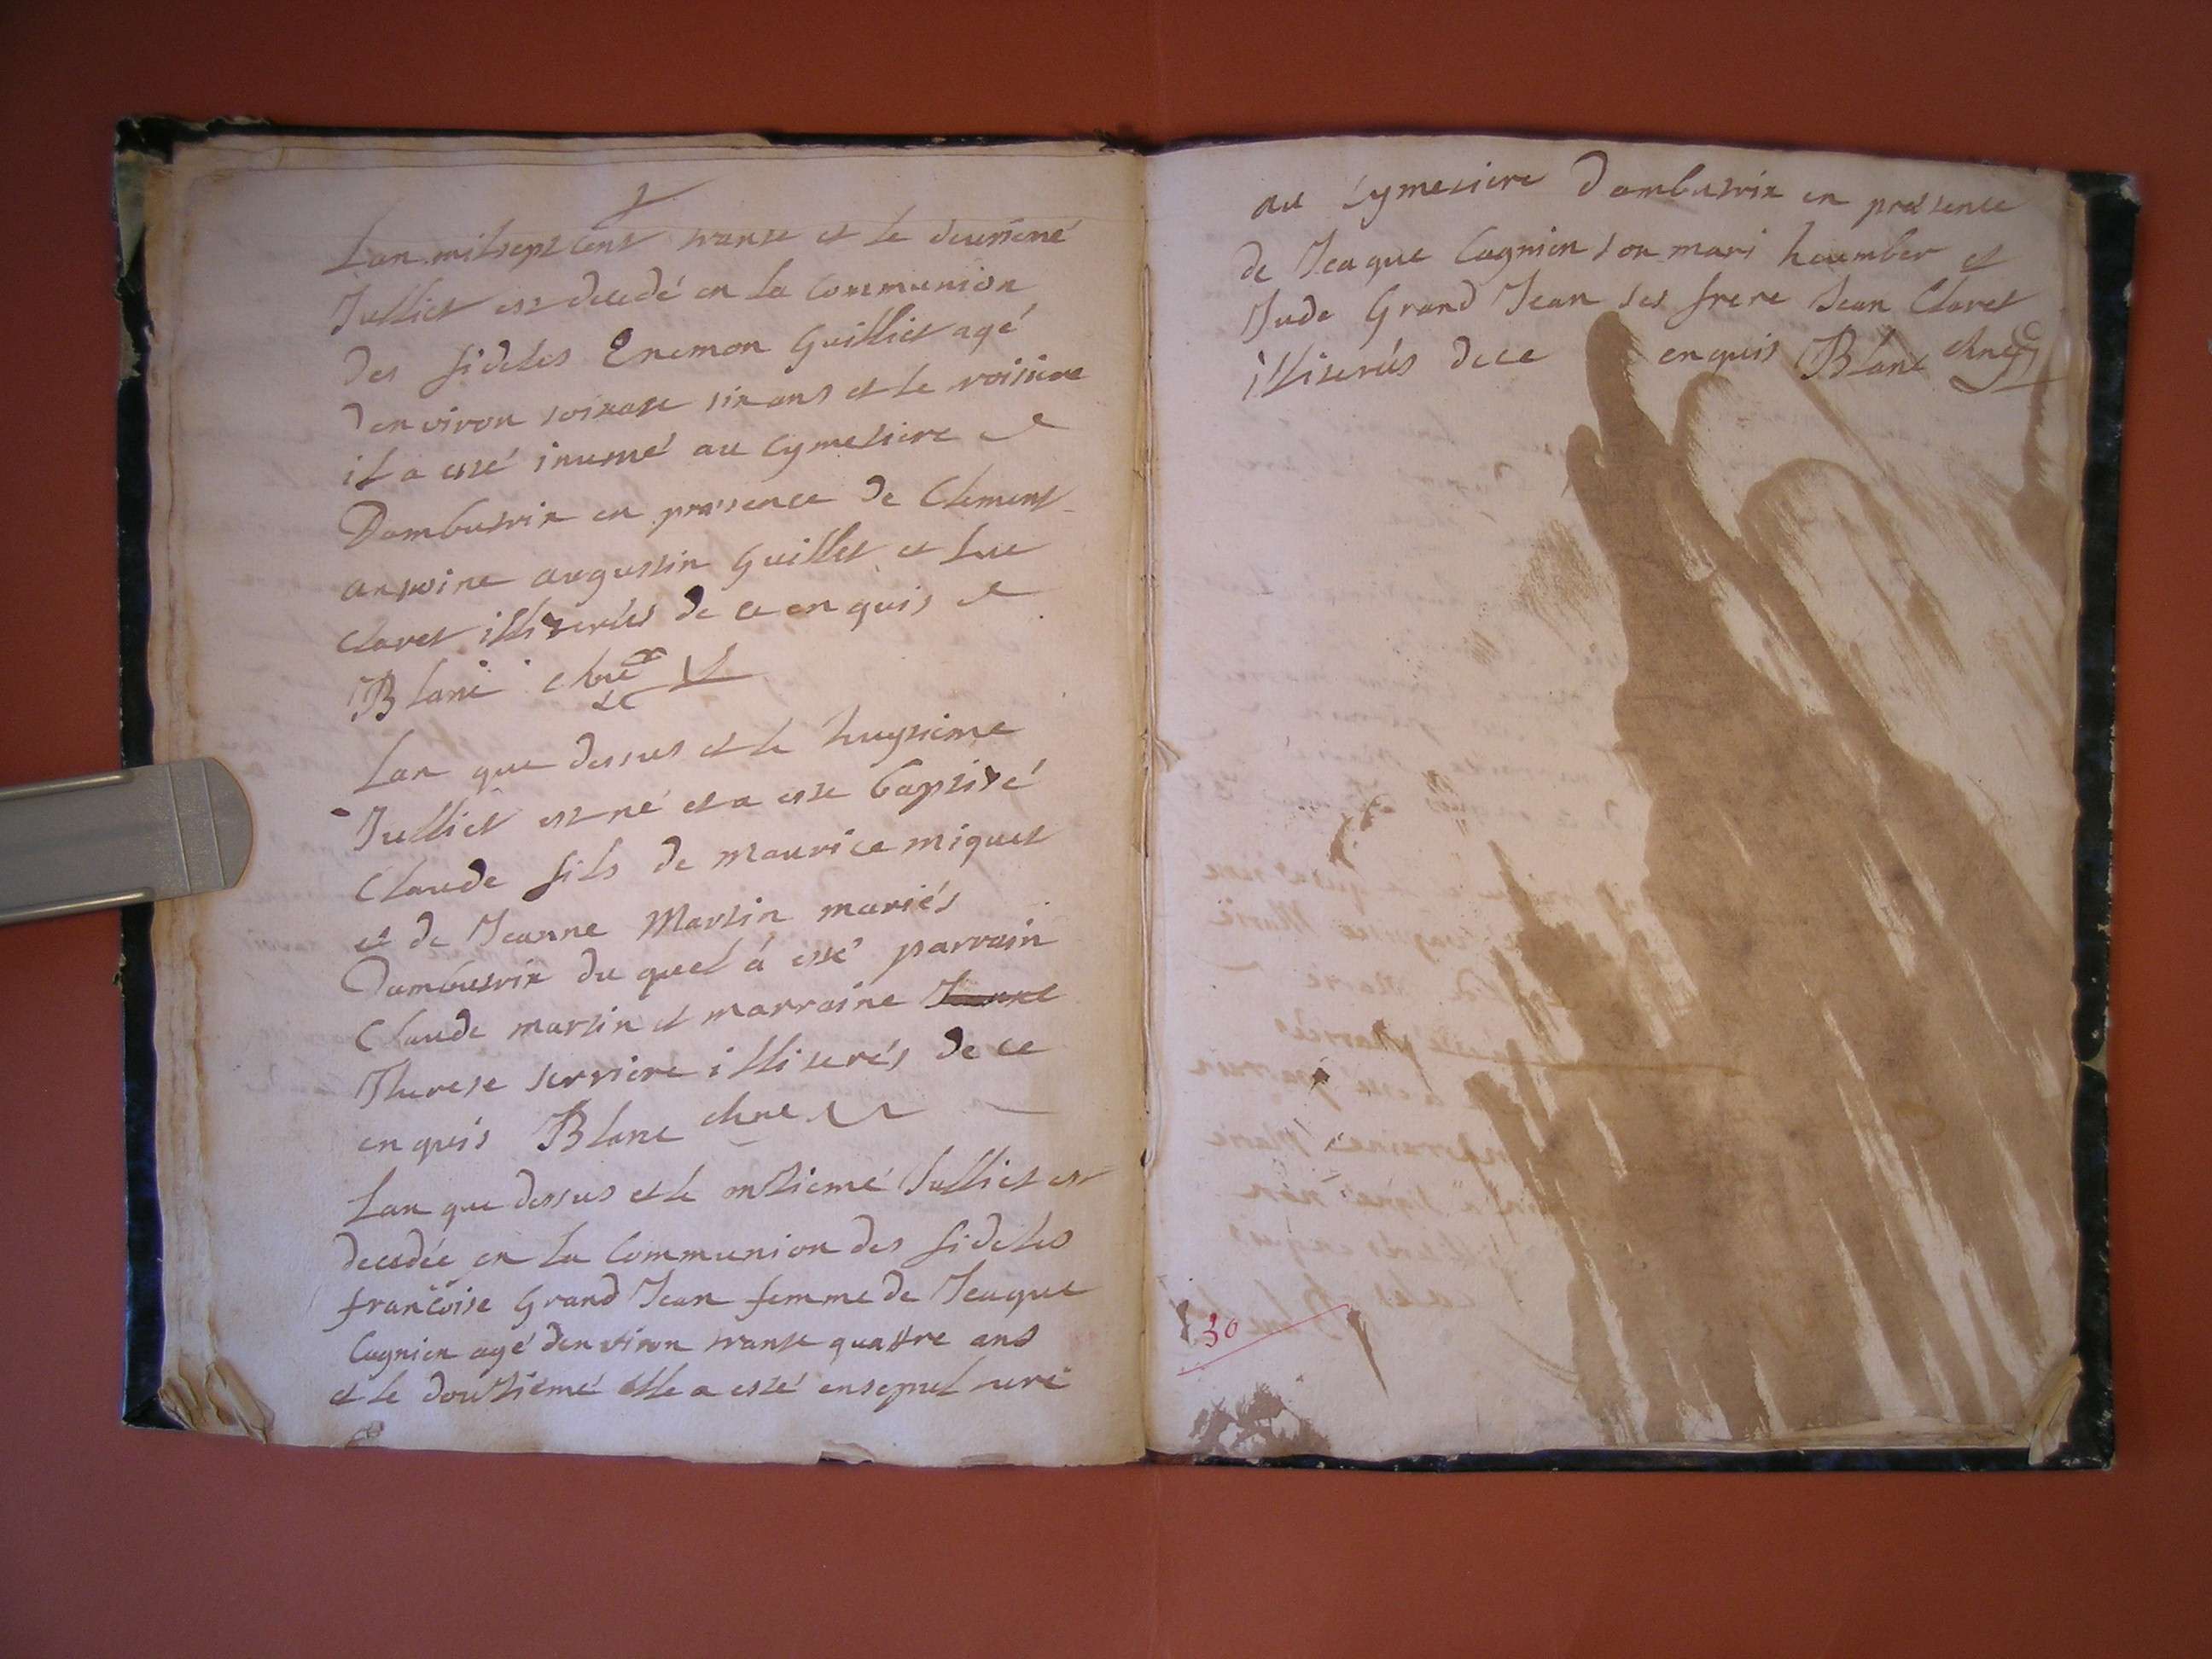 Lan milsept cent trante et le deusiemé
Julliet est decedé en la Communion
des fideles Enemon Guilliet agé
denviron soixante six ans et le troisieme
il a esté inumé au Cymetiere
Dambutrix en presence de Clement
antoine augustin Guillet et Luc
Claret illiterés de ce enquis
Blanc chne
Lan que dessus et le huytieme
Julliet est né et a esté baptisé
Claude fils de maurice miquet
et de Jeanne Martin mariés
Dambutrix du quel á esté parrain
Claude martin et marraine
Therese serviere illiterés de ce
enquis Blanc chne
Lan que dessus et le ontiemé Julliet est
decedée en la Communion des fideles
françoise Grand Jean femme de Jeaque
Cagnion agé denviron trante quattre ans
et le douttiemé elle a esté ensepulturé
au Cymetiere Dambutrix en presence
de Jeaque Cagnion son mari humber et
Jude Grand Jean ses frere Jean Claret
illiterés de ce enquis Blanc chne
30